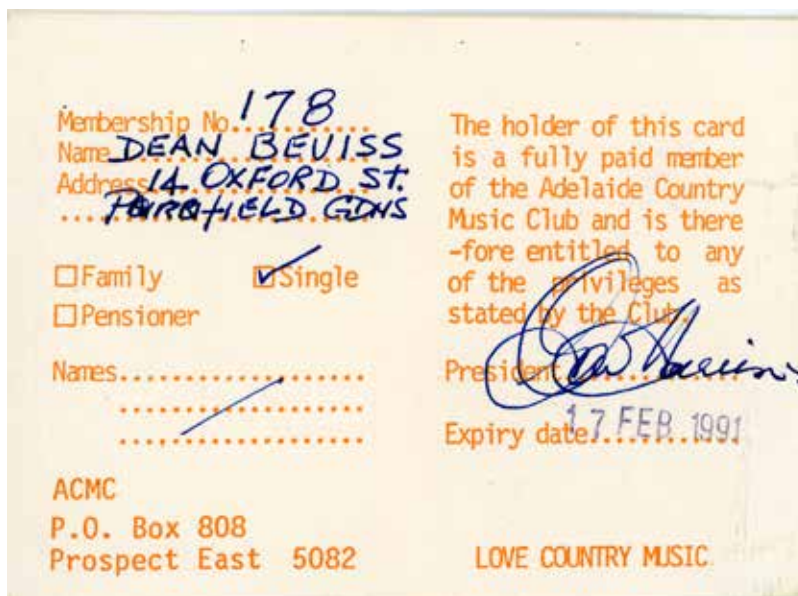 Membership No. 178
Name DEAN BEVISS
Address 14 OXFORD ST.
PARAFIELD GDNS
Family
Single
Pensioner
Names
ACMC
P.O. Box 808
Prospect East 5082
The holder of this card
is a fully paid member
of the Adelaide Country
Music Club and is there
-fore entitled to any
of the privileges as
stated by the Club.
President
Expiry date 17 FEB 1991
LOVE COUNTRY MUSIC